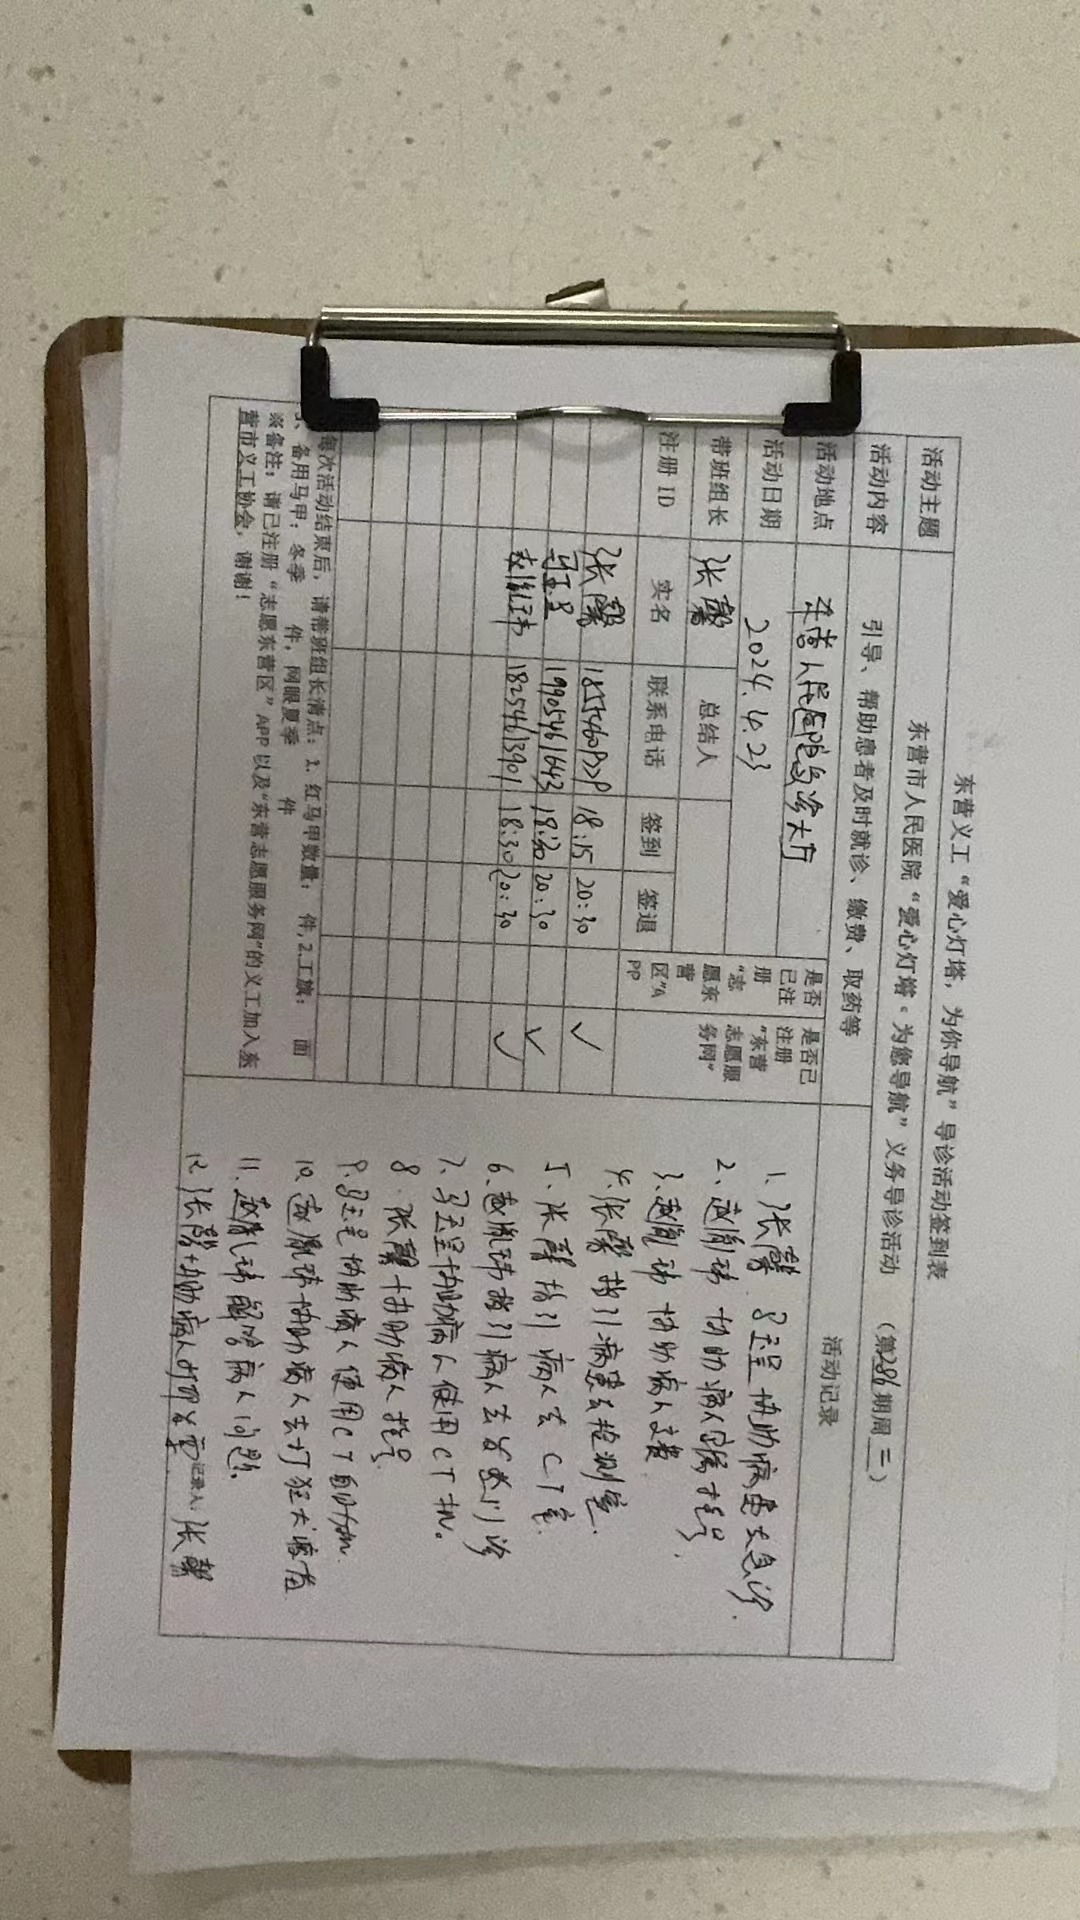 东营义工“爱心灯塔，为你导航”导诊活动签到表
活动主题 东营市人民医院“爱心灯塔·为您导航”义务导诊活动 （第286期周三）
活动内容 引导、帮助患者及时就诊、缴费、取药等
活动地点 人民医院急诊大厅
活动日期 2024.4.23
带班组长 张馨 总结人
注册 ID 实名 联系电话 签到 签退 是否已注册“志愿东营区”APP 是否已注册“东营志愿服务网”
张馨 18:15 20:30 ✓
马玉呈 19905461643 18:30 20:30 ✓
赵胤玮 18254613901 18:30 20:30 ✓
活动记录
1. 张馨 马玉呈协助病患去急诊.
2、赵胤玮 协助病人家属挂号.
3、赵胤玮 协助病人交费
4、张馨指引病患去检测室.
5、张馨指引病人去CT室.
6、赵胤玮指引病人去发热门诊
7、马玉呈协助病人使用CT机。
8、张馨协助病人挂号.
9、马玉呈协助病人使用CT自助机.
10、赵胤玮协助病人去打狂犬疫苗
11、赵胤玮解答病人问题.
12、张馨协助病人打印发票
记录人：张馨
每次活动结束后，请带班组长清点：1.红马甲数量： 件，2.工旗： 面
3、备用马甲：冬季 件，网眼夏季 件
※备注：请已注册“志愿东营区”APP以及“东营志愿服务网”的义工加入东
营市义工协会，谢谢！